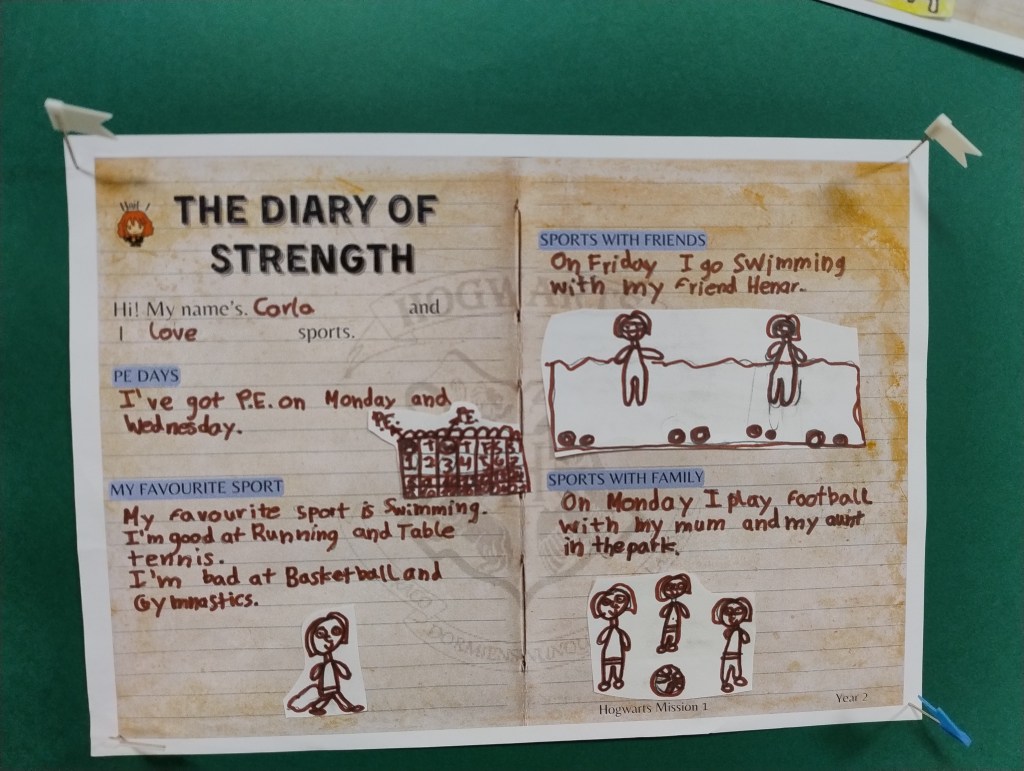 THE DIARY OF
STRENGTH
Hi! My name's. Carla and
I love sports.
PE DAYS
I've got P.E. on Monday and
Wednesday.
P.E. P.E.
1 2 3 4 5 6
MY FAVOURITE SPORT
My favourite sport is Swimming.
I'm good at Running and Table
tennis.
I'm bad at Basketball and
Gymnastics.
SPORTS WITH FRIENDS
On Friday I go Swimming
with my Friend Henar.
SPORTS WITH FAMILY
On Monday I play Football
with my mum and my aunt
in the park.
Hogwarts Mission 1
Year 2
HOGWARTS